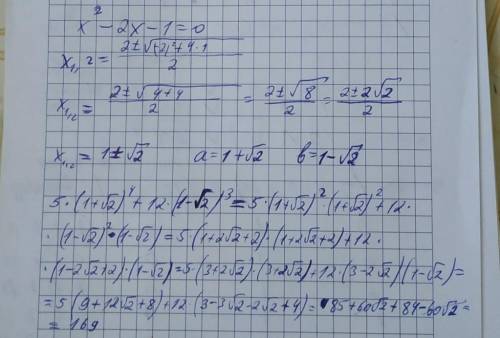 x² - 2x - 1 = 0
x₁,₂ = (2 ± √((-2)² + 4·1)) / 2
x₁,₂ = (2 ± √(4+4)) / 2 = (2 ± √8) / 2 = (2 ± 2√2) / 2
x₁,₂ = 1 ± √2 a = 1 + √2 b = 1 - √2
5·(1+√2)⁴ + 12·(1-√2)³ = 5·(1+√2)²·(1+√2)² + 12·
·(1-√2)²·(1-√2) = 5(1+2√2+2)·(1+2√2+2) + 12·
·(1-2√2+2)·(1-√2) = 5·(3+2√2)·(3+2√2) + 12·(3-2√2)(1-√2) =
= 5(9+12√2+8) + 12(3-3√2-2√2+4) = 85+60√2+84-60√2 =
= 169